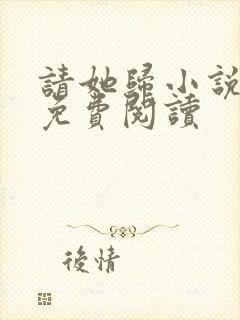 請她歸小說
免費閱讀
後情